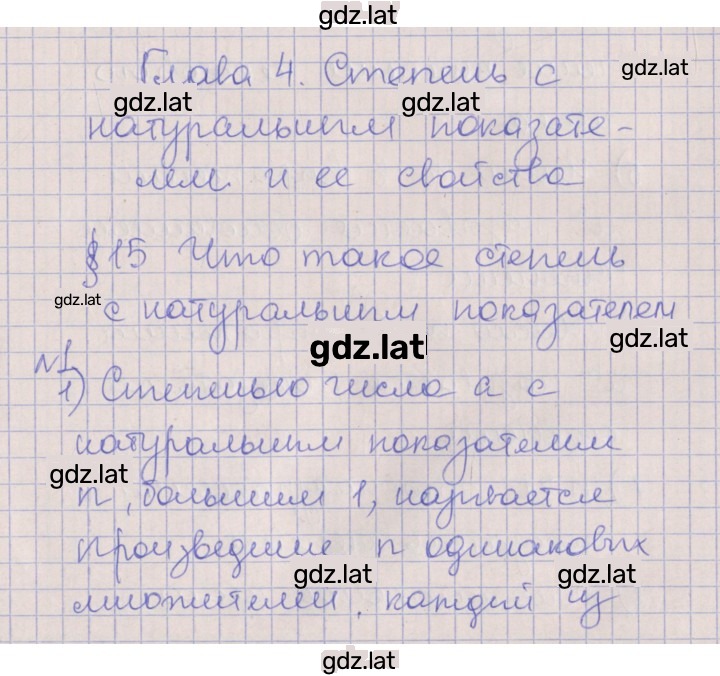 gdz.lat
Глава 4. Степень с
gdz.lat
gdz.lat gdz.lat
натуральным показате-
лем и ее свойства
§15 Что такое степень
gdz.lat
с натуральным показателем
gdz.lat gdz.lat
№1
1) Степенью числа а с
натуральным показателим
gdz.lat
n, большим 1, называется
произведение n одинаковых
gdz.lat gdz.lat
множителей, каждый из
gdz.lat